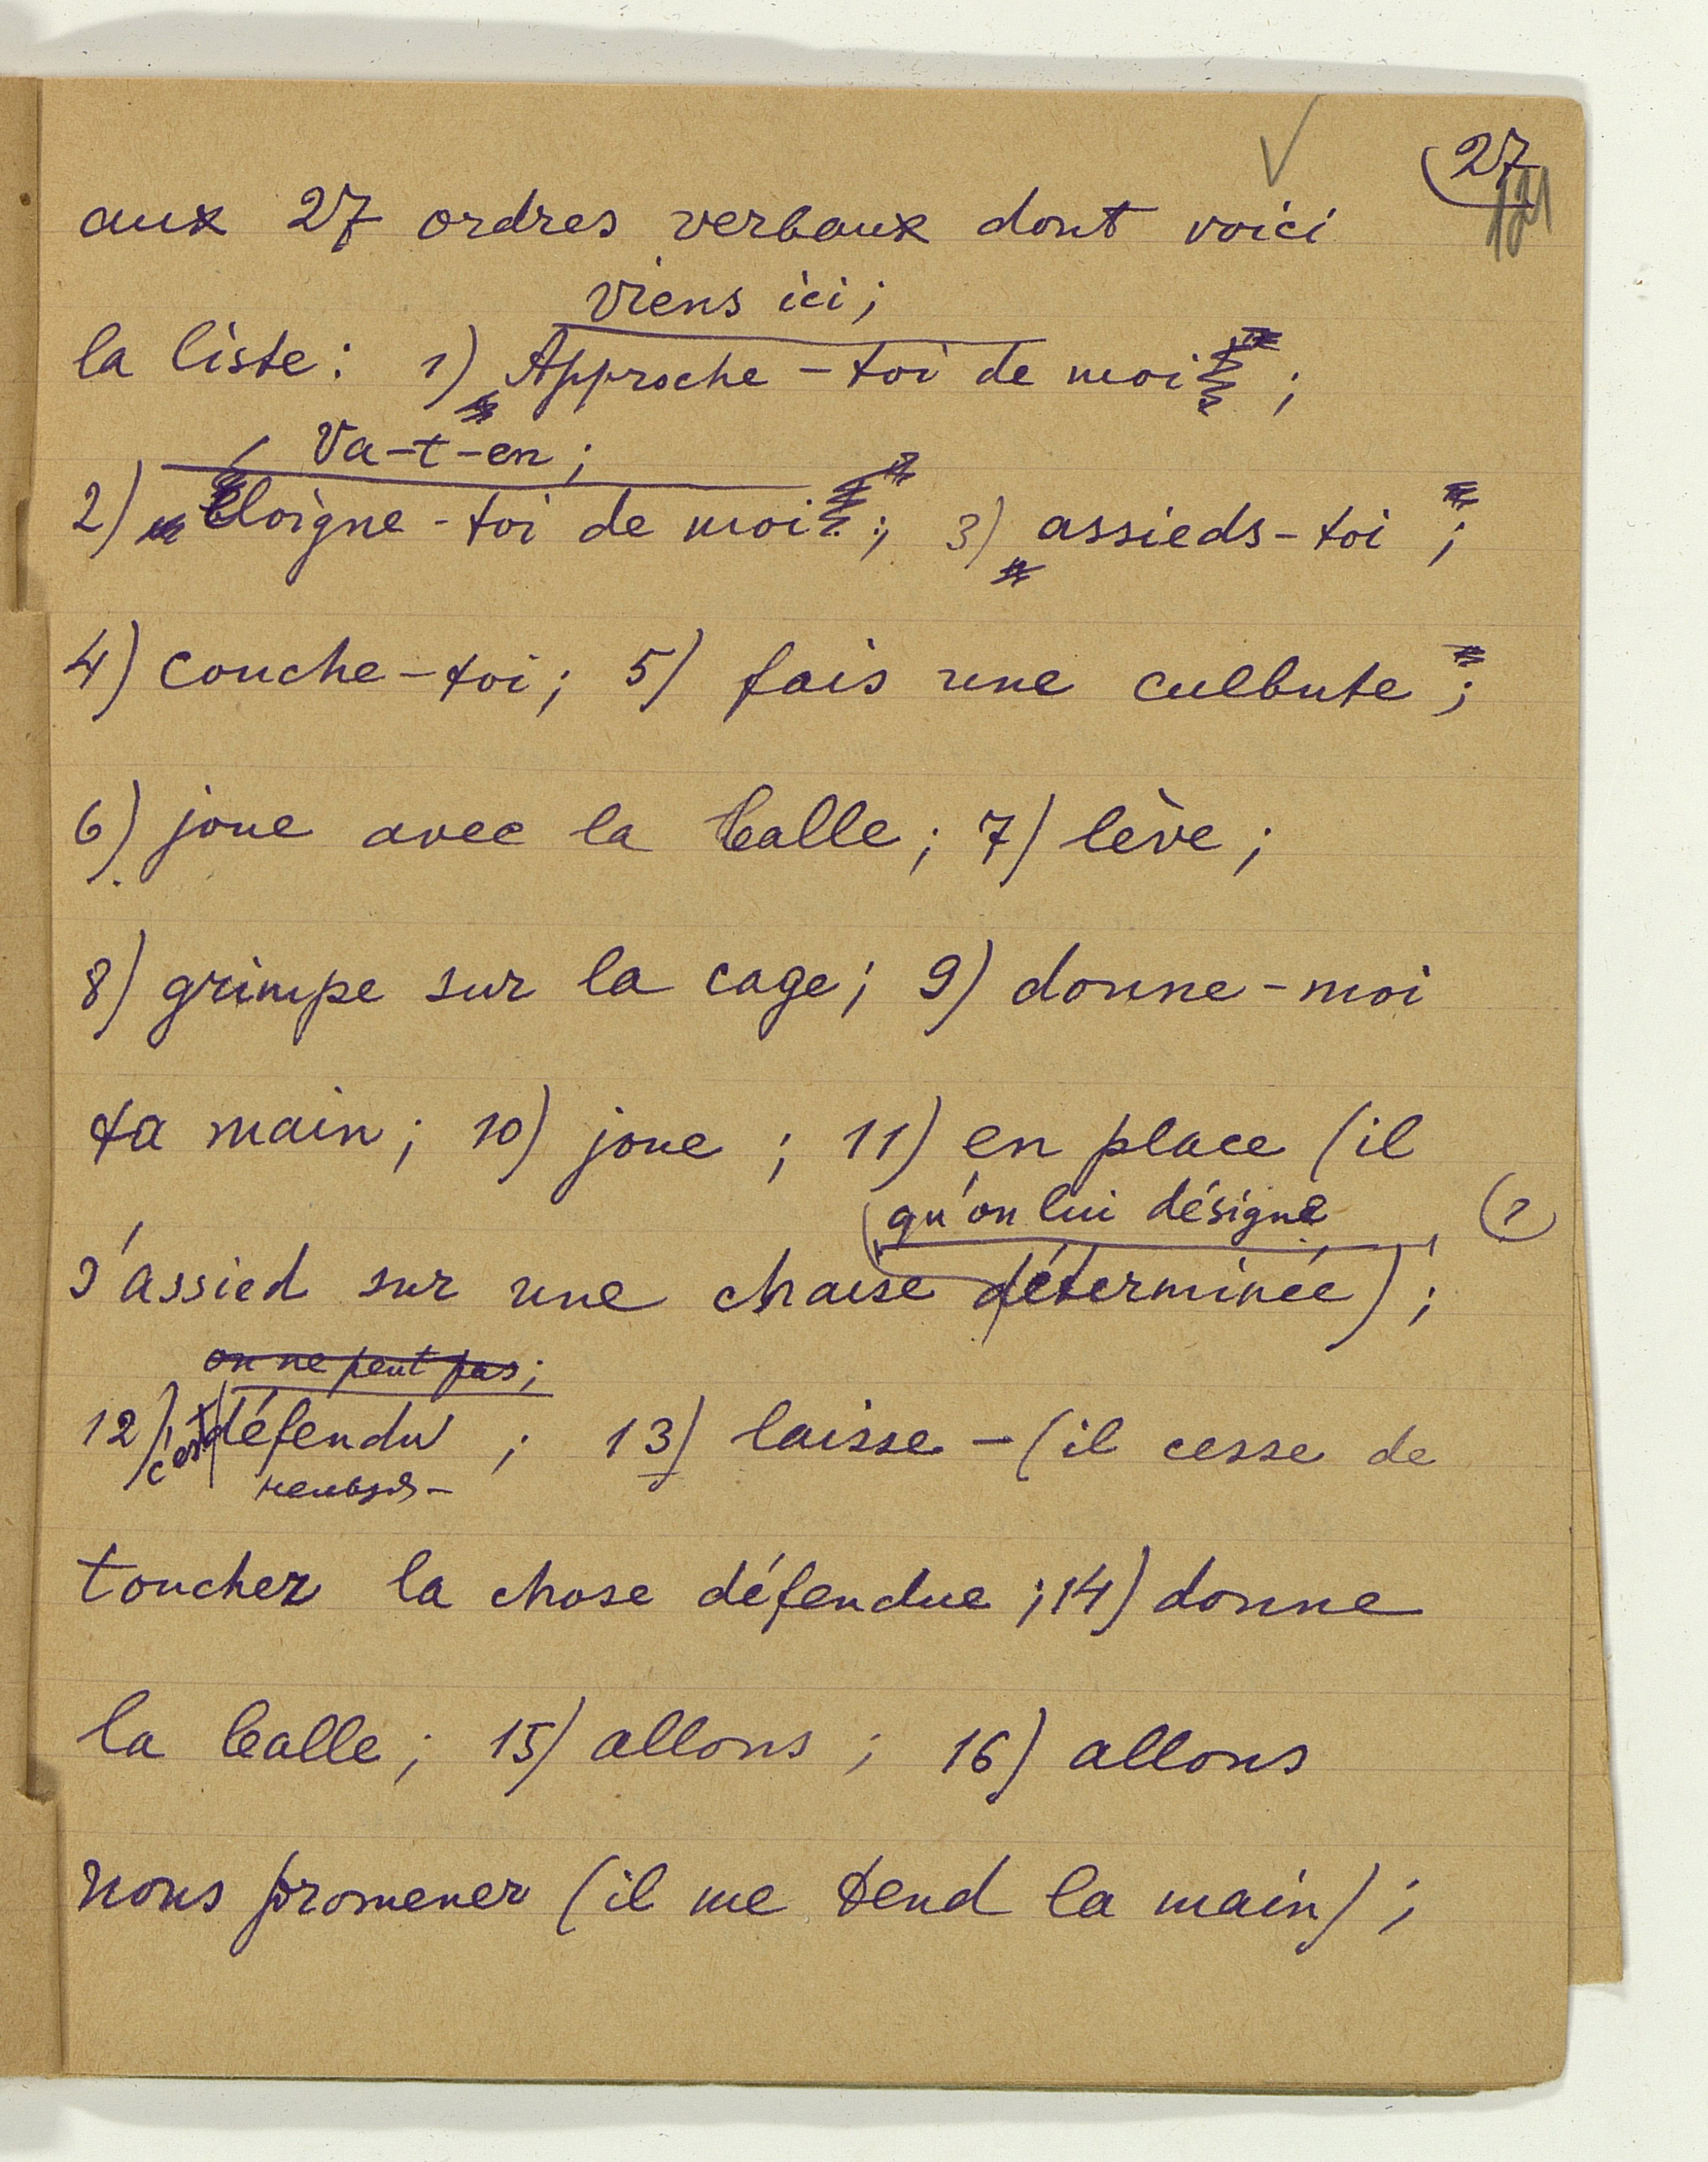 27
121
aux 27 ordres verbaux dont voici
viens ici;
la liste: 1) Approche-toi de moi;
Va-t-en;
2) éloigne-toi de moi; 3) assieds-toi;
4) couche-toi; 5) fais une culbute;
6) joue avec la balle; 7) lève;
8) grimpe sur la cage; 9) donne-moi
ta main; 10) joue; 11) en place (il
qu'on lui désigne (?)
s'assied sur une chaise déterminée);
on ne peut pas;
12) c'est défendu; 13) laisse - (il cesse de
нельзя-
toucher la chose défendue; 14) donne
la balle; 15) allons; 16) allons
nous promener (il me tend la main);